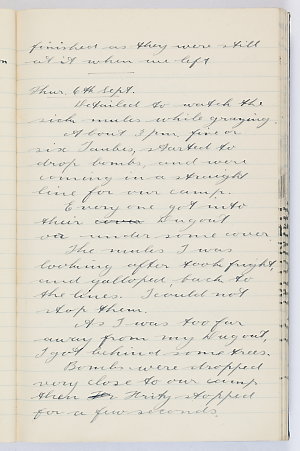 finished as they were still
at it when we left
Thur. 6th Sept.
Detailed to watch the
sick mules while grazing.
About 3 pm, five or
six Taubes, started to
drop bombs, and were
coming in a straight
line for our camp.
Everyone got into
their Dugout
or under some cover
The mules I was
looking after took fright,
and galloped back to
the lines. I could not
stop them.
As I was too far
away from my Dugout,
I got behind some trees.
Bombs were dropped
very close to our camp
then Fritz stopped
for a few seconds.